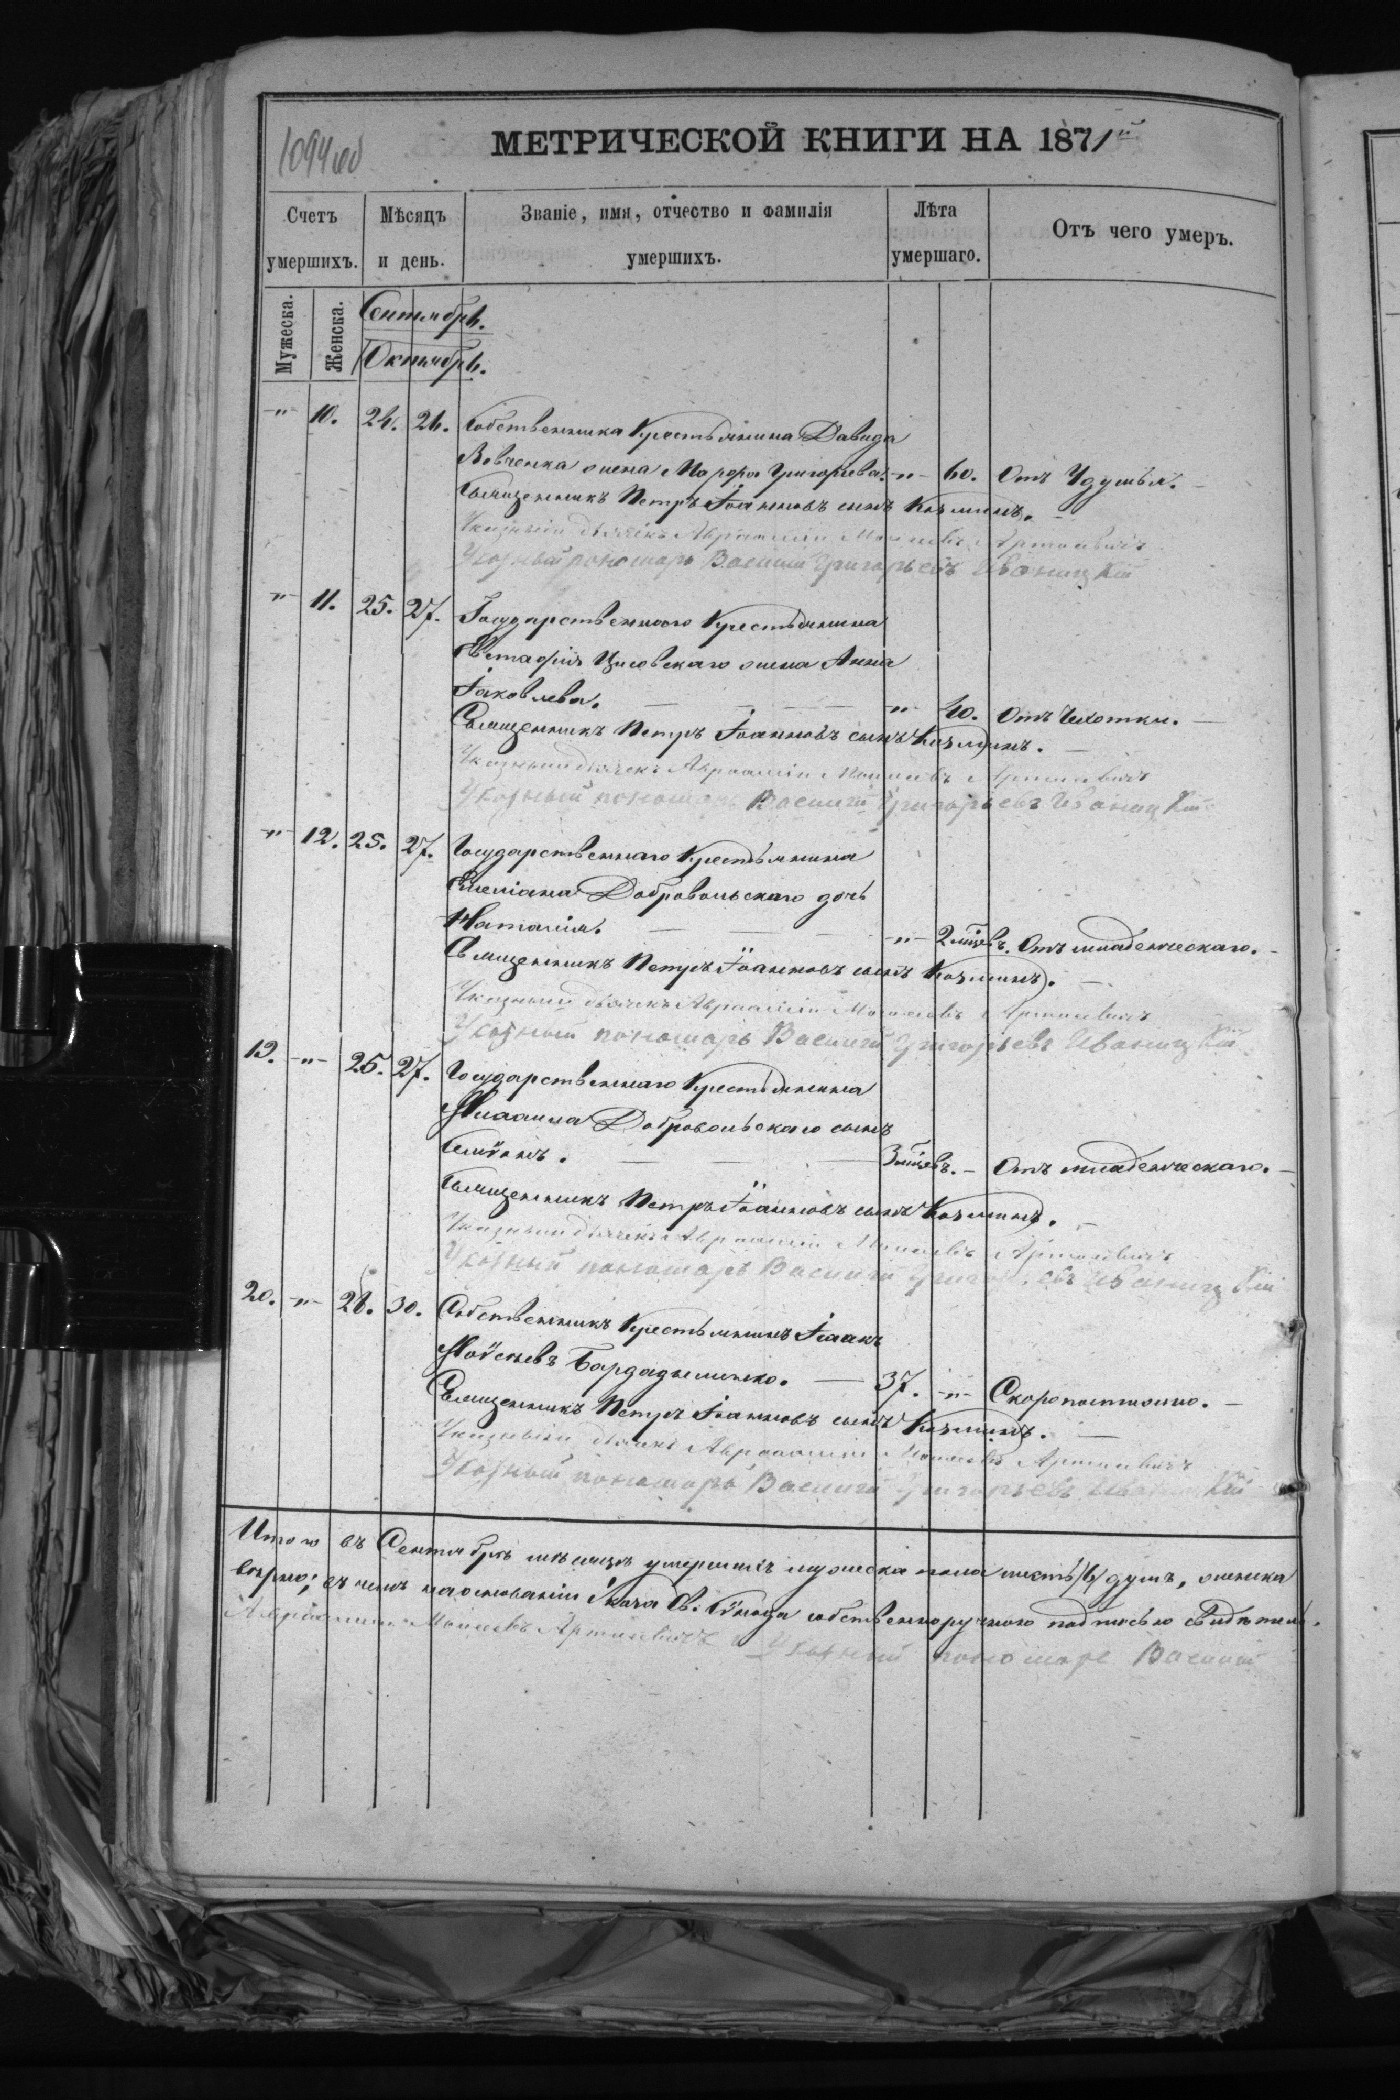 1094 об
МЕТРИЧЕСКОЙ КНИГИ НА 1871й
Счетъ умершихъ. Мѣсяцъ и день. Званіе, имя, отчество и фамилія умершихъ. Лѣта умершаго. Отъ чего умеръ.
Мужеска. Женска. Сентябрь.
Октябрь.
-"- 10. 24. 26. Собственника Крестьянина Давида
Вовченка жена Марфа Григорьева. -"- 60. Отъ Удушья.
Священникъ Петръ Іоанновъ сынъ
Указный дьячекъ Авраамій
Указный пономарь Василій Григорьевъ Иваницкій
-"- 11. 25. 27. Государственного Крестьянина
Евстафія жена Анна
Іаковлева. -"- 40. Отъ Чахотки.
Священникъ Петръ Іоанновъ сынъ
Указный дьячекъ Авраамій
Указный пономарь Василій Григорьевъ Иваницкій
-"- 12. 25. 27. Государственнаго Крестьянина
Емеліана Добровольскаго дочь
Наталія. -"- 2 мѣсц. Отъ младенческаго.
Священникъ Петръ Іоанновъ сынъ
Указный дьячекъ Авраамій
Указный пономарь Василій Григорьевъ Иваницкій
19. -"- 25. 27. Государственнаго Крестьянина
Михаила Добровольскаго сынъ
Симеонъ. 3 мѣсц. - Отъ младенческаго.
Священникъ Петръ Іоанновъ сынъ
Указный дьячекъ Авраамій
Указный пономарь Василій Григорьевъ Иваницкій
20. -"- 28. 30. Собственникъ Крестьянинъ Іоаннъ
Моѵсеевъ Бардадименко. 37. -"- Скоропостижно.
Священникъ Петръ Іоанновъ сынъ
Указный дьячекъ Авраамій
Указный пономарь Василій Григорьевъ Иваницкій
Итого въ Сентябрѣ мѣсяцѣ умершихъ мужеска пола шесть /6/ душъ, женска
въ чемъ на основаніи Указа Св: Сѵнода собственноручною подписью свидѣтель.
Авраамій и Указный пономарь Василій